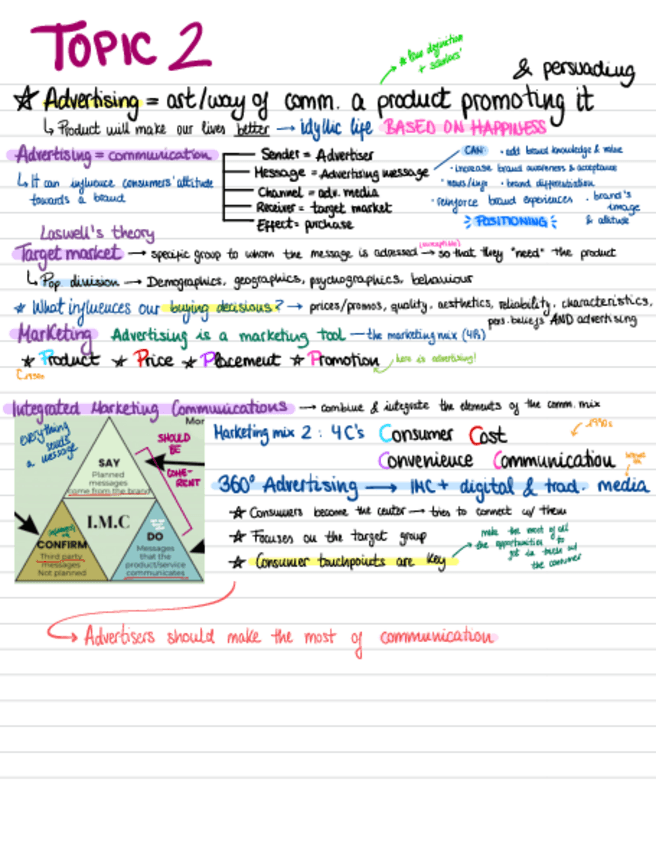 TOPIC 2
* low definition + scholars'
& persuading
☆ Advertising = art/way of comm. a product promoting it
↳ Product will make our lives better → idyllic life BASED ON HAPPINESS
Advertising = communication
↳ It can influence consumers' attitude towards a brand
Sender = Advertiser
Message = Advertising message
Channel = adv. media
Receiver = target market
Effect = purchase
CAN · add brand knowledge & value
· increase brand awareness & acceptance
· brand differentiation
· reinforce brand experiences · brand's image & attitude
POSITIONING
Laswell's theory
Target market → specific group to whom the message is adressed → so that they "need" the product
(susceptible)
↳ Pop division → Demographics, geographics, psychographics, behaviour
* What influences our buying decisions? → prices/promos, quality, aesthetics, reliability, characteristics,
pers. beliefs AND advertising
Marketing Advertising is a marketing tool — the marketing mix (4Ps)
★ Product ★ Price ★ Placement ★ Promotion
here is advertising!
1950s
Integrated Marketing Communications → combine & integrate the elements of the comm. mix
everything sends a message
Mor
SHOULD BE COHE-RENT
SAY
Planned messages
come from the brand
I.M.C
CONFIRM
Third party messages
Not planned
DO
Messages that the product/service communicates
Marketing mix 2 : 4 C's Consumer Cost
1990s
Convenience Communication
360° Advertising → IMC + digital & trad. media
★ Consumers become the center → tries to connect w/ them
★ Focuses on the target group
★ Consumer touchpoints are key
make the most of all the opportunities to get in touch w/ the consumer
Advertisers should make the most of communication